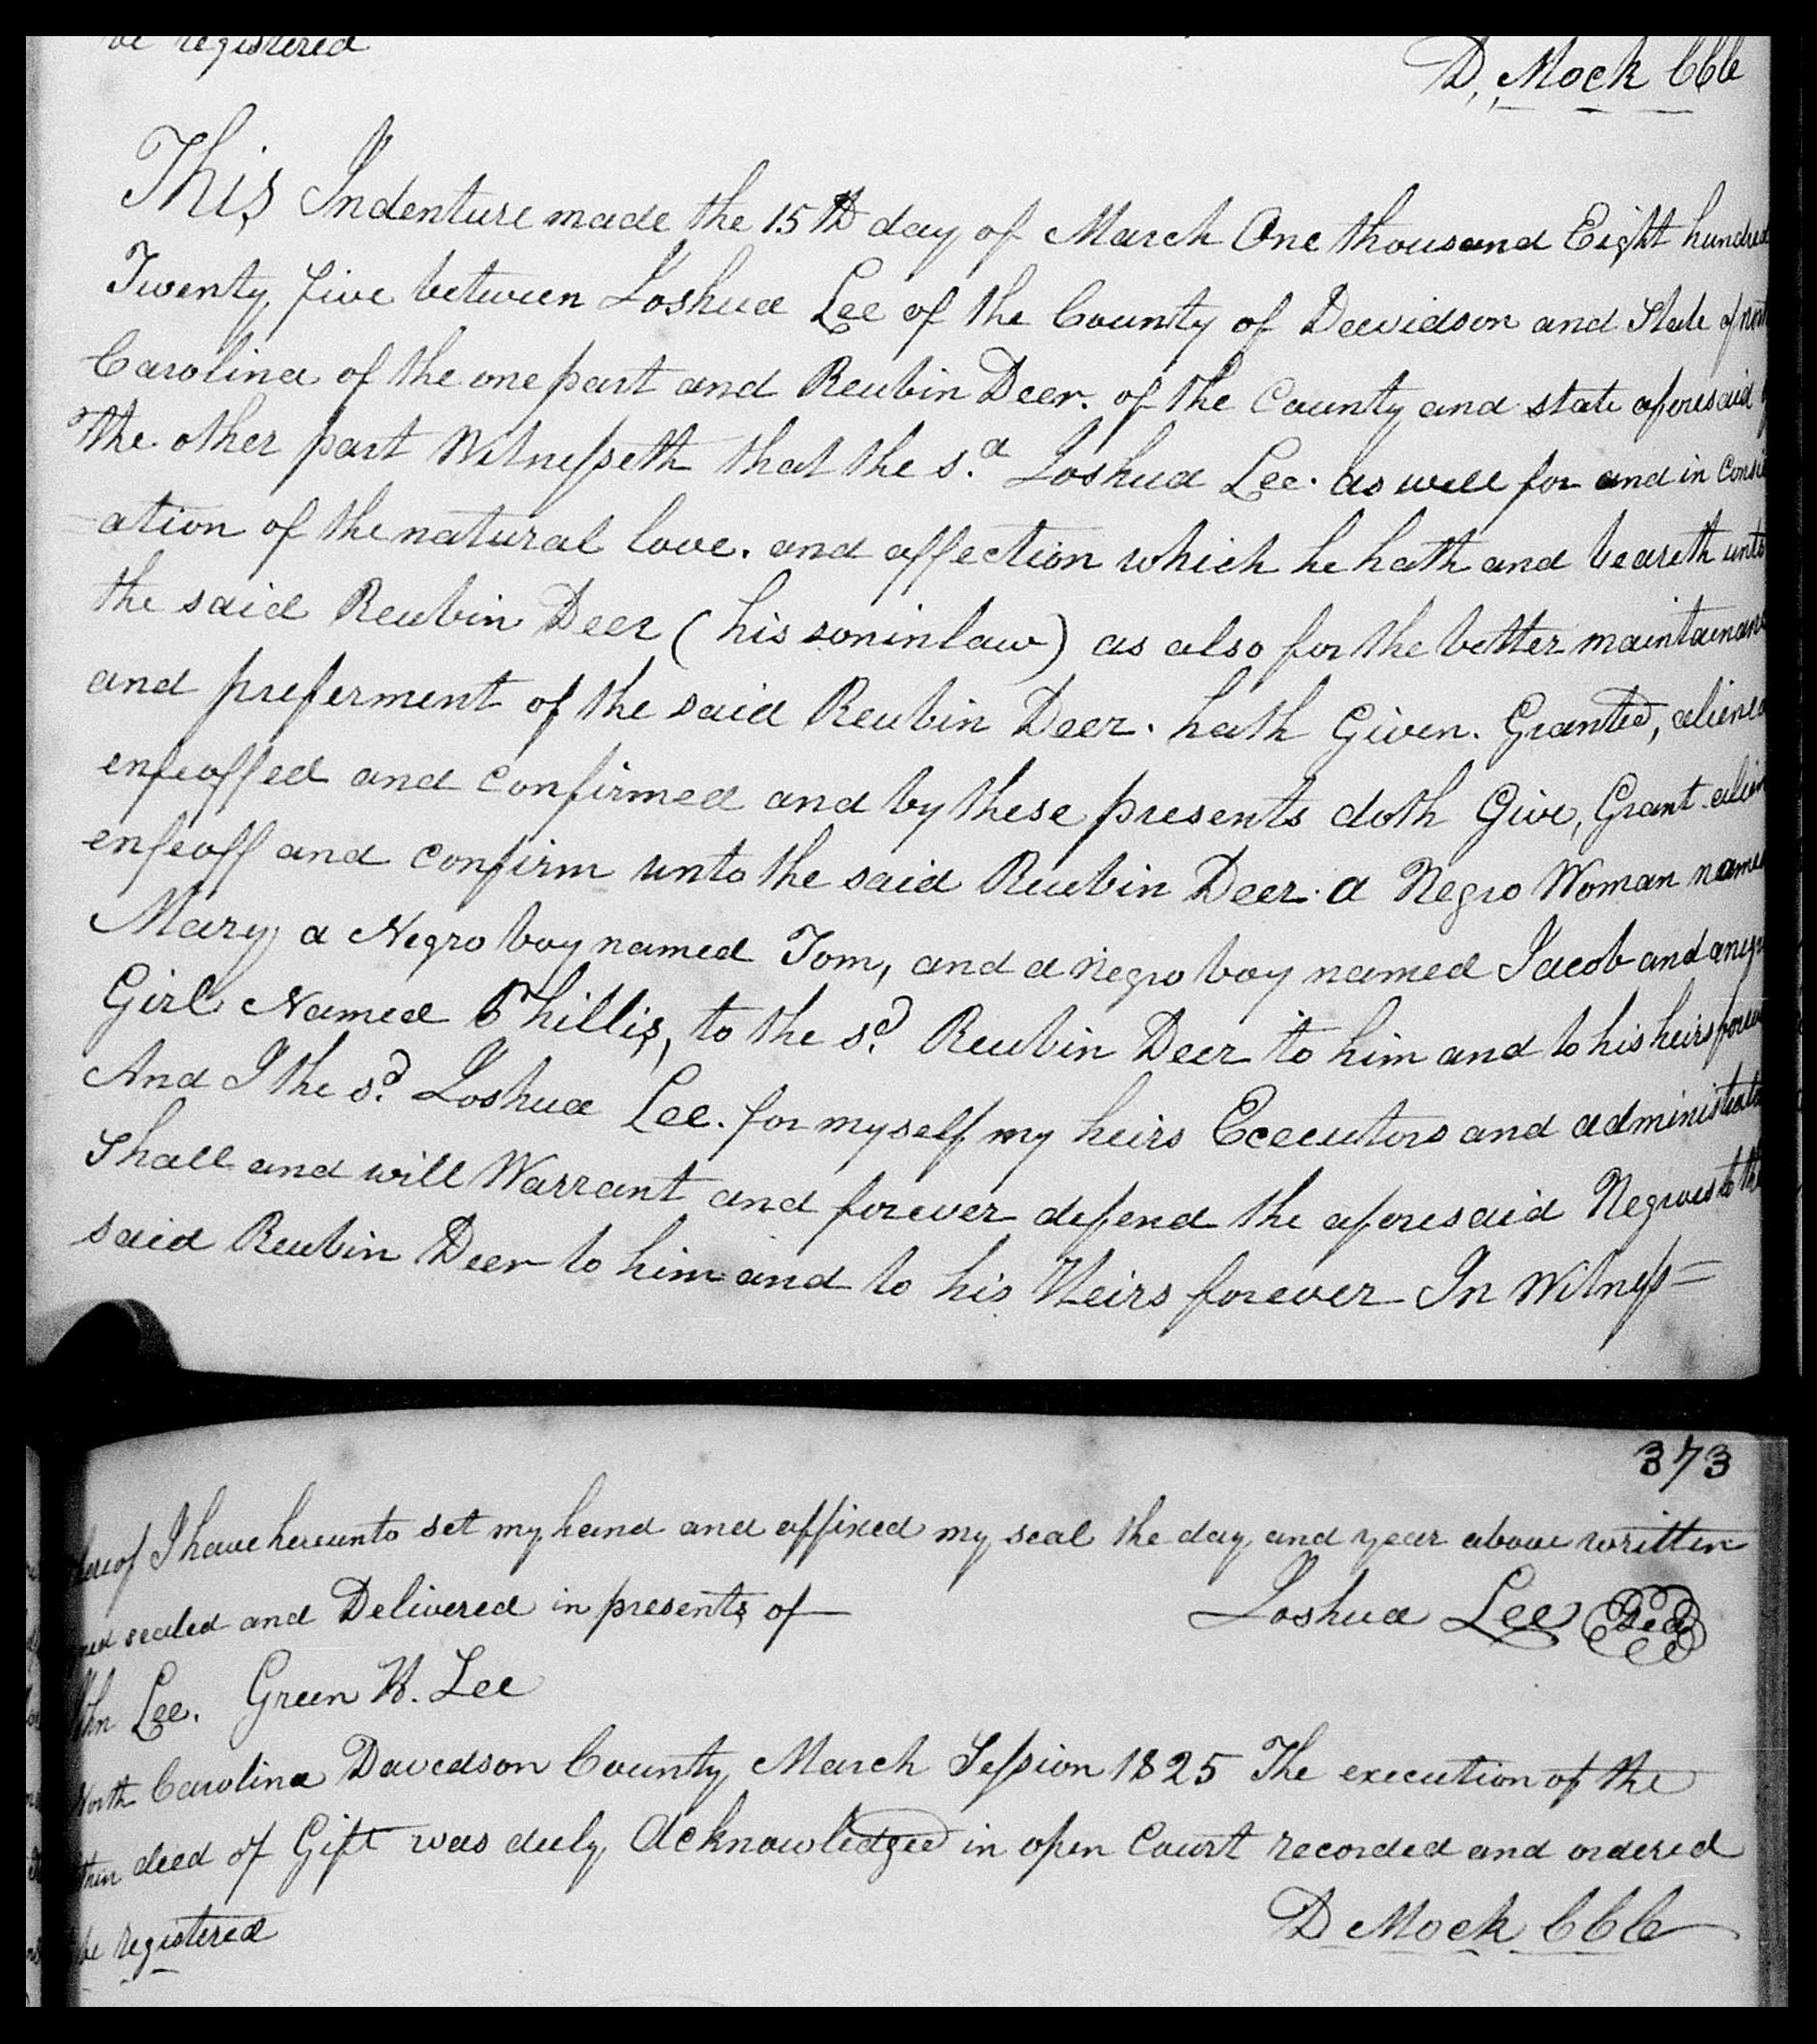 be registered
D. Mock CCC
This Indenture made the 15th day of March One thousand Eight hundred
Twenty five between Joshua Lee of the County of Davidson and State of
Carolina of the one part and Reubin Deer. of the County and state aforesaid
the other part Witnesseth that the sd. Joshua Lee. as well for and in
ation of the natural love. and affection which he hath and beareth unto
the said Reubin Deer (his soninlaw) as also for the better
and preferment of the said Reubin Deer. hath Given. Granted,
enfeoffed and confirmed and by these presents doth Give, Grant
enfeoff and confirm unto the said Reubin Deer. a Negro Woman
Mary, a Negro boy named Tom, and a negro boy named Jacob and
Girl Named Phillis, to the sd. Reubin Deer to him and to his heirs
And I the sd. Joshua Lee. for myself my heirs Executors and
Shall and will Warrant and forever defend the aforesaid Negroes to
said Reubin Deer to him and to his Heirs forever In Witness=
373
hereof I have hereunto set my hand and affixed my seal the day and year above written
sealed and Delivered in presents of
Joshua Lee Seal
John Lee. Green H. Lee
North Carolina Davedson County March Session 1825 The execution of the
deed of Gift was duly Acknowledged in open Court recorded and ordered
be registered
D Mock CCC